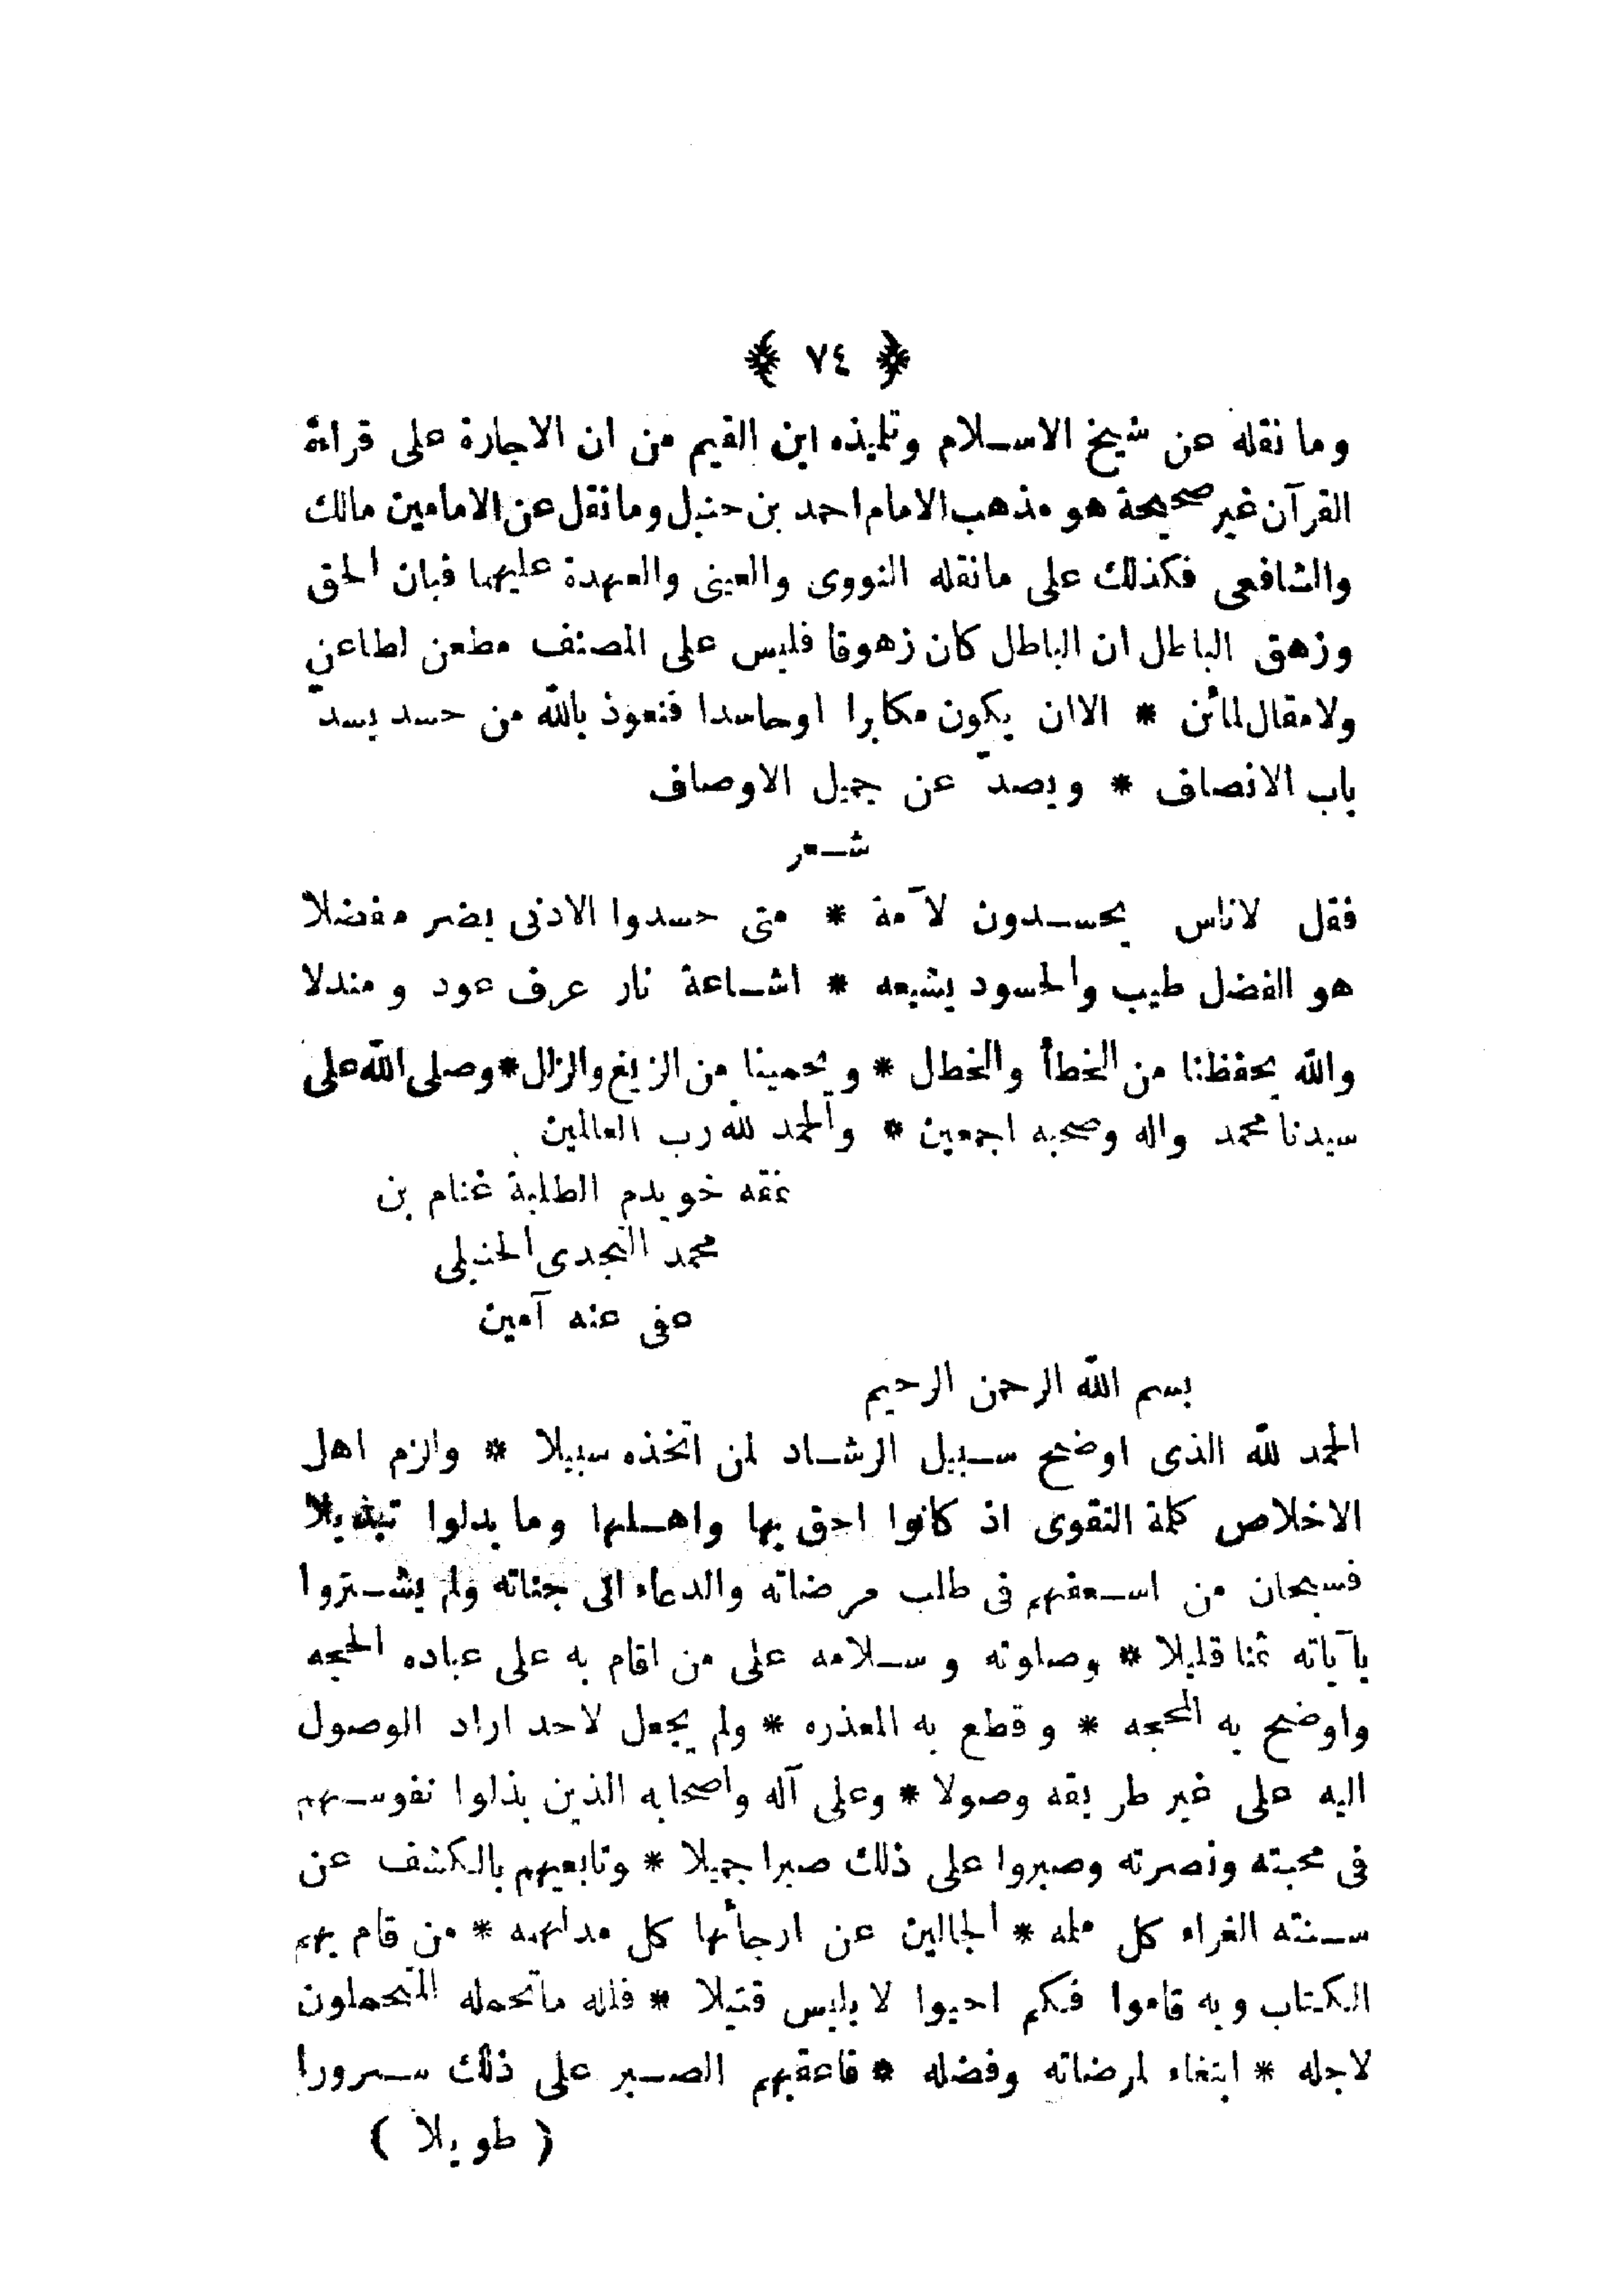 ﴿ ٧٤ ﴾
وما نقله عن شيخ الاسلام وتلميذه ابن القيم من ان الاجارة على قراءة
القرآن غير صحيحة هو مذهب الامام احمد بن حنبل وما نقل عن الامامين مالك
والشافعى فكذلك على مانقله النووى والعينى والعهدة عليهما فبان الحق
وزهق الباطل ان الباطل كان زهوقا فليس على المصنف مطعن لطاعن
ولا مقال لمائن * الاان يكون مكابرا اوحاسدا فنعوذ بالله من حسد يسدّ
باب الانصاف * ويصدّ عن جميل الاوصاف
شعر
فقل لاناس يحسدون لآمة * متى حسدوا الادنى يضر مفضلا
هو الفضل طيب والحسود يشيعه * اشاعة نار عرف عود و مندلا
والله يحفظنا من الخطأ والخطل * ويحمينا من الزيغ والزلل * وصلى الله على
سيدنا محمد واله وصحبه اجمعين * والحمد لله رب العالمين
نمقه خويدم الطلبة غنام بن
محمد النجدى الحنبلى
عفى عنه آمين
بسم الله الرحمن الرحيم
الحمد لله الذى اوضح سبيل الرشاد لمن اتخذه سبيلا * والزم اهل
الاخلاص كلمة التقوى اذ كانوا احق بها واهلها وما بدلوا تبديلا
فسبحان من اسعفهم فى طلب مرضاته والدعاء الى جناته ولم يشتروا
بآياته ثمنا قليلا * وصلوته وسلامه على من اقام به على عباده الحجه
واوضح به المحجه * وقطع به المعذره * ولم يجعل لاحد اراد الوصول
اليه على غير طريقه وصولا * وعلى آله واصحابه الذين بذلوا نفوسهم
فى محبته ونصرته وصبروا على ذلك صبرا جميلا * وتابعيهم بالكشف عن
سنته الغراء كل ملمه * الجالين عن ارجأئها كل مدلهمه * من قام بهم
الكتاب وبه قاموا فكم احيوا لابليس قتيلا * فلله ماتحمله المتحملون
لاجله * ابتغاء لمرضاته وفضله * فاعقبهم الصبر على ذلك سرورا
( طويلا )